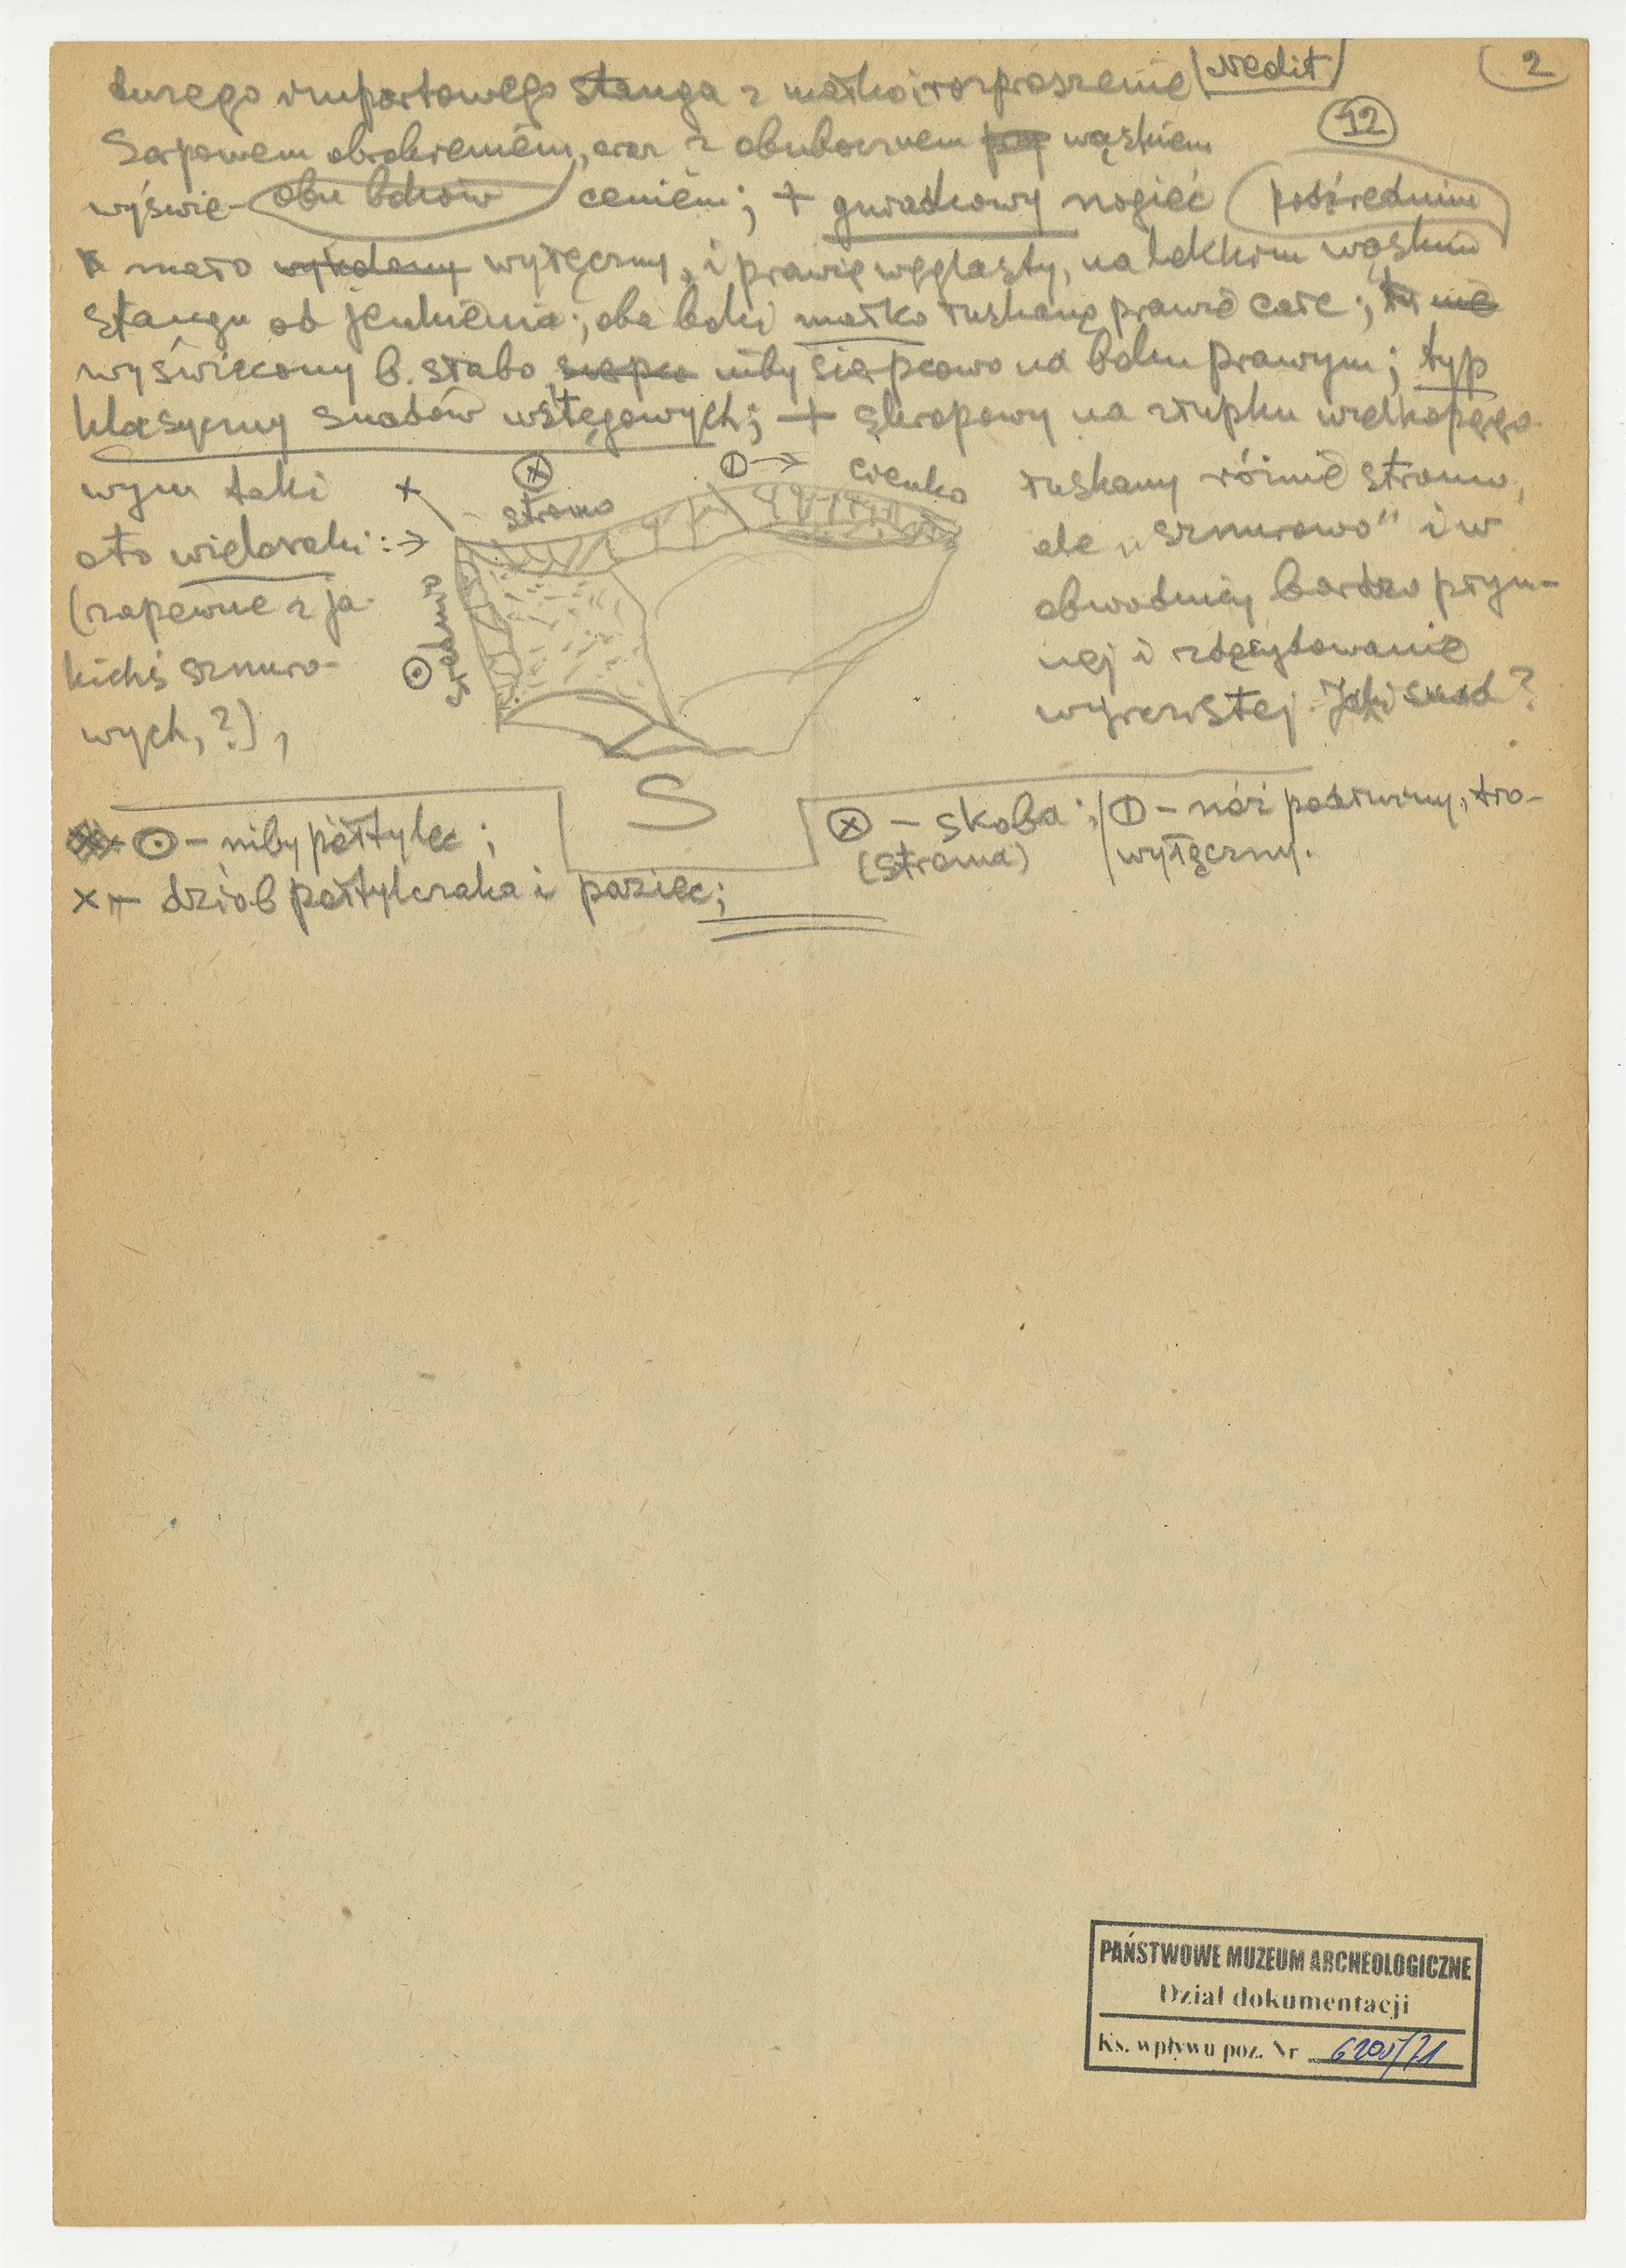 Nedit
2
12
durego importowego stanga z małko i rozproszenie
Sarpowem obrobieniem, oraz z obubocznem wąskiem
wyświe- obu boków ceniem; + gwiazdkowy nogieć pośrednim
mało wykolany wyłęczny, i prawie węglasty, na lekkim wąskim
stangu od jeulienia; oba boki małko łuskane prawie całe; tu nie
wyświecony b. słabo sierpco niby sierpcowo na boku prawym; typ
klasyczny snadów wstęgowych; + skropowy na złupku wielkopęgo-
wym taki
oto wieloraki: →
(zapewne z ja-
kichś sznuro-
wych, ?),
x
stromo
cienko
średnio
łuskany różnie stromo,
ale „sznurowo" i w
obwodnicy bardzo płyn-
nej i zdecydowanie
wyrazistej. Jaki snad?
S
⊙ – niby półtylec;
x – dziób półtylczaka i paziec;
⊗ – skoba;
(stroma)
⦶ – nóż podłużny, tro-
wyłęczny.
PAŃSTWOWE MUZEUM ARCHEOLOGICZNE
Dział dokumentacji
Ks. wpływu poz. Nr